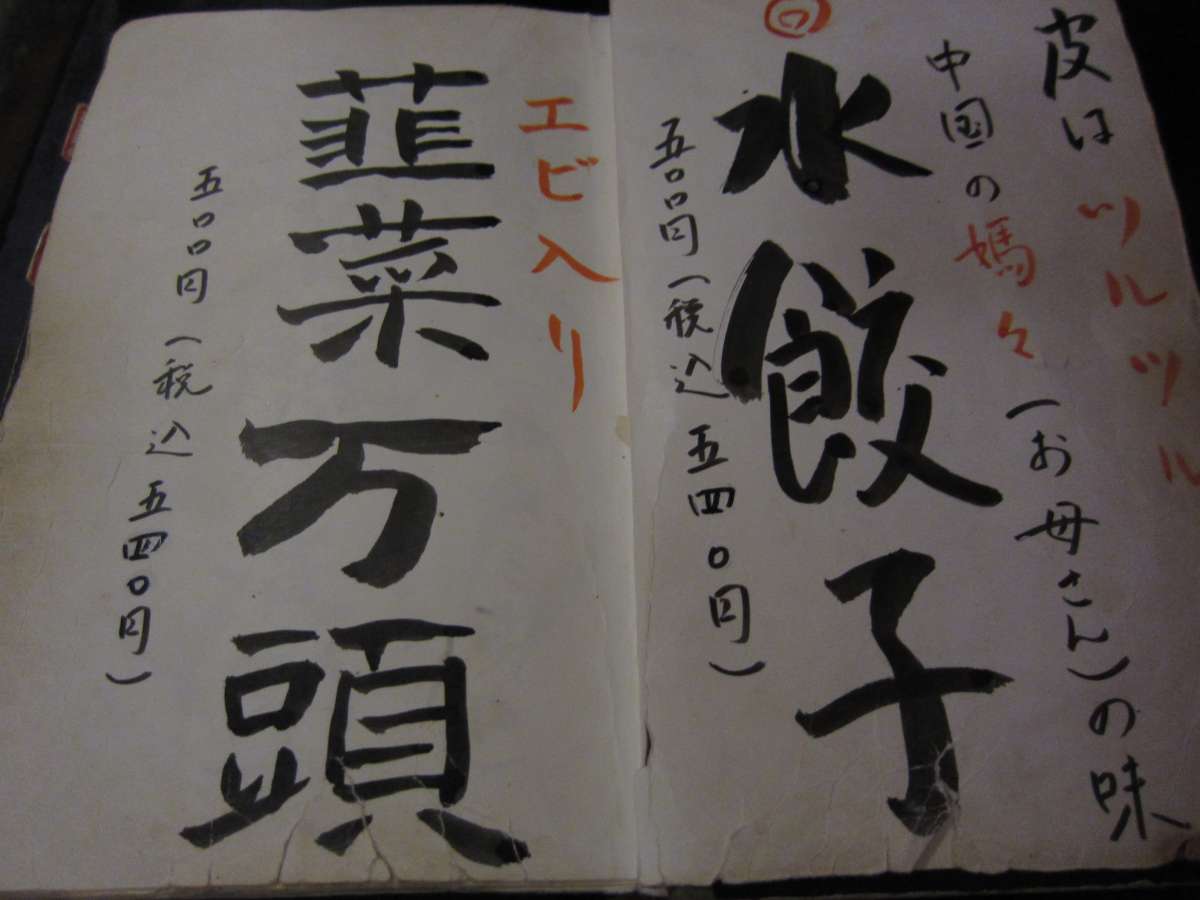 皮はツルツル
中国の媽々(お母さん)の味
水餃子
五〇〇円(税込五四〇円)
エビ入り
韮菜万頭
五〇〇円(税込五四〇円)